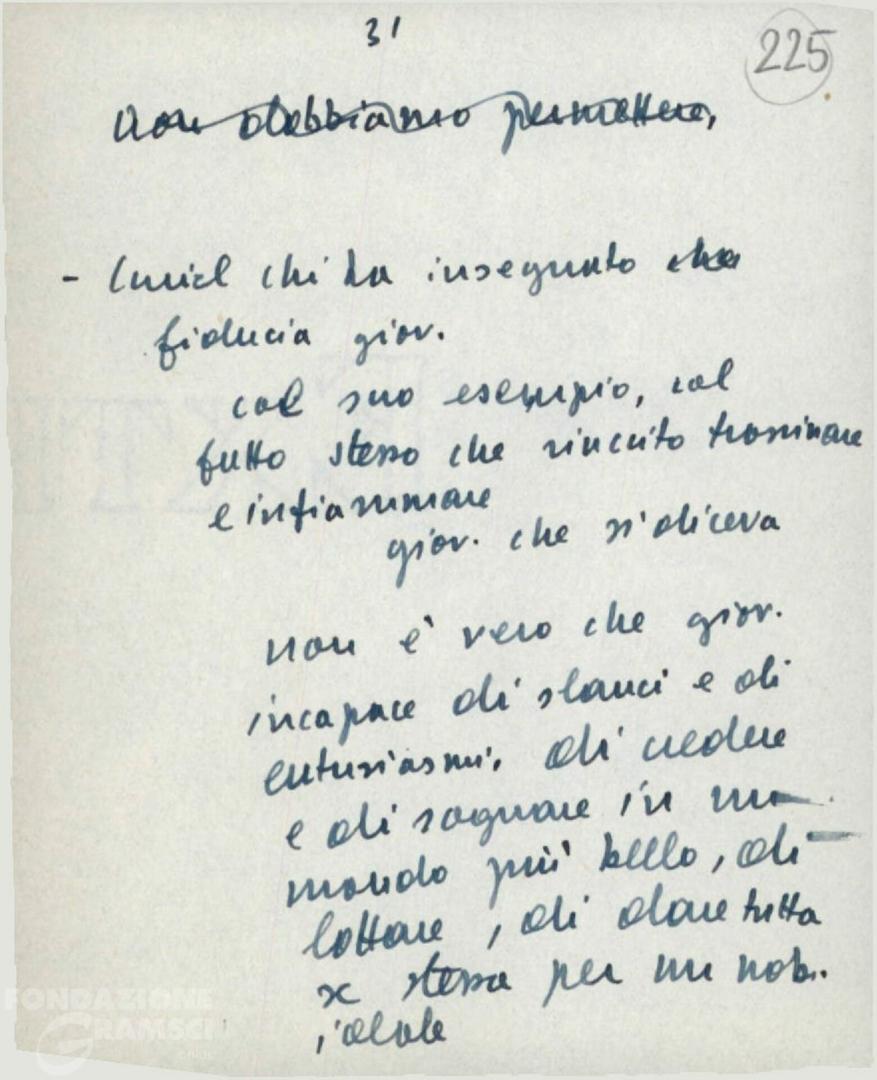 31
225
non dobbiamo permettere,
- Curiel chi ha insegnato che
fiducia giov.
col suo esempio, col
fatto stesso che riuscito trascinare
e infiammare
giov. che si diceva
non è vero che giov.
incapace di slanci e di
entusiasmi, di credere
e di sognare in un
mondo più bello, di
lottare, di dare tutta
se stessa per un nob.
ideale
FONDAZIONE
GRAMSCI